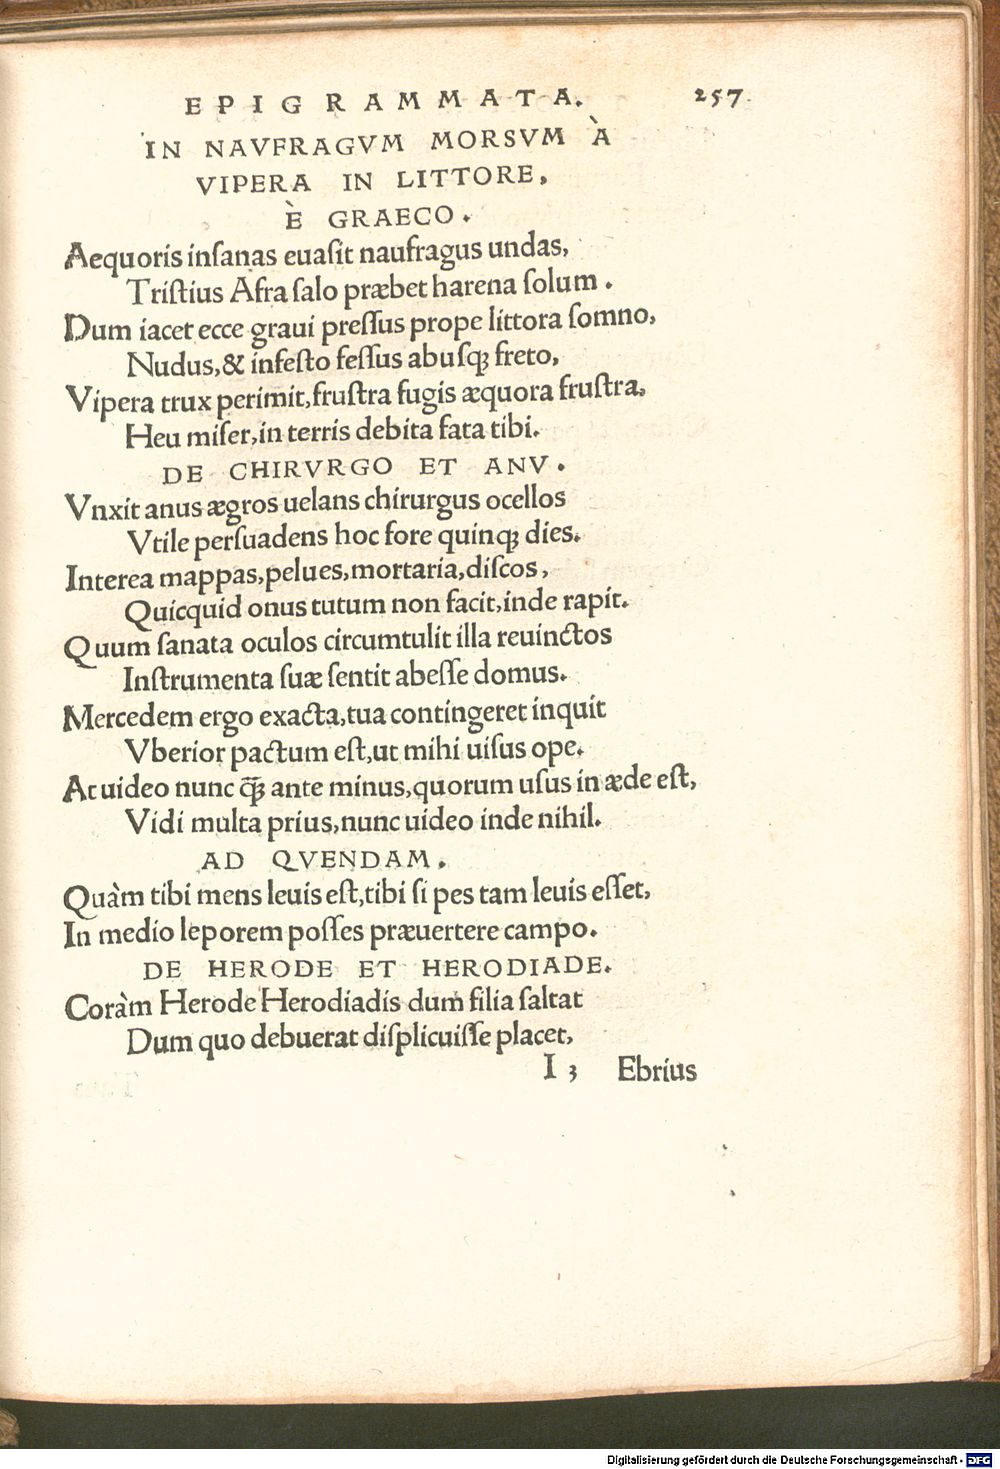 EPIGRAMMATA. 257
IN NAVFRAGVM MORSVM À
VIPERA IN LITTORE,
È GRAECO.
Aequoris inſanas euaſit naufragus undas,
Triſtius Afra ſalo præbet harena ſolum.
Dum iacet ecce graui preſſus prope littora ſomno,
Nudus, & infeſto feſſus abuſqꝫ freto,
Vipera trux perimit, fruſtra fugis æquora fruſtra,
Heu miſer, in terris debita fata tibi.
DE CHIRVRGO ET ANV.
Vnxit anus ægros uelans chirurgus ocellos
Vtile perſuadens hoc fore quinqꝫ dies.
Interea mappas, pelues, mortaria, diſcos,
Quicquid onus tutum non facit, inde rapit.
Quum ſanata oculos circumtulit illa reuinctos
Inſtrumenta ſuæ ſentit abeſſe domus.
Mercedem ergo exacta, tua contingeret inquit
Vberior pactum eſt, ut mihi uiſus ope.
At uideo nunc q̃ꝫ ante minus, quorum uſus in æde eſt,
Vidi multa prius, nunc uideo inde nihil.
AD QVENDAM.
Quàm tibi mens leuis eſt, tibi ſi pes tam leuis eſſet,
In medio leporem poſſes præuertere campo.
DE HERODE ET HERODIADE.
Coràm Herode Herodiadis dum filia ſaltat
Dum quo debuerat diſplicuiſſe placet,
I 3 Ebrius
Digitalisierung gefördert durch die Deutsche Forschungsgemeinschaft - DFG